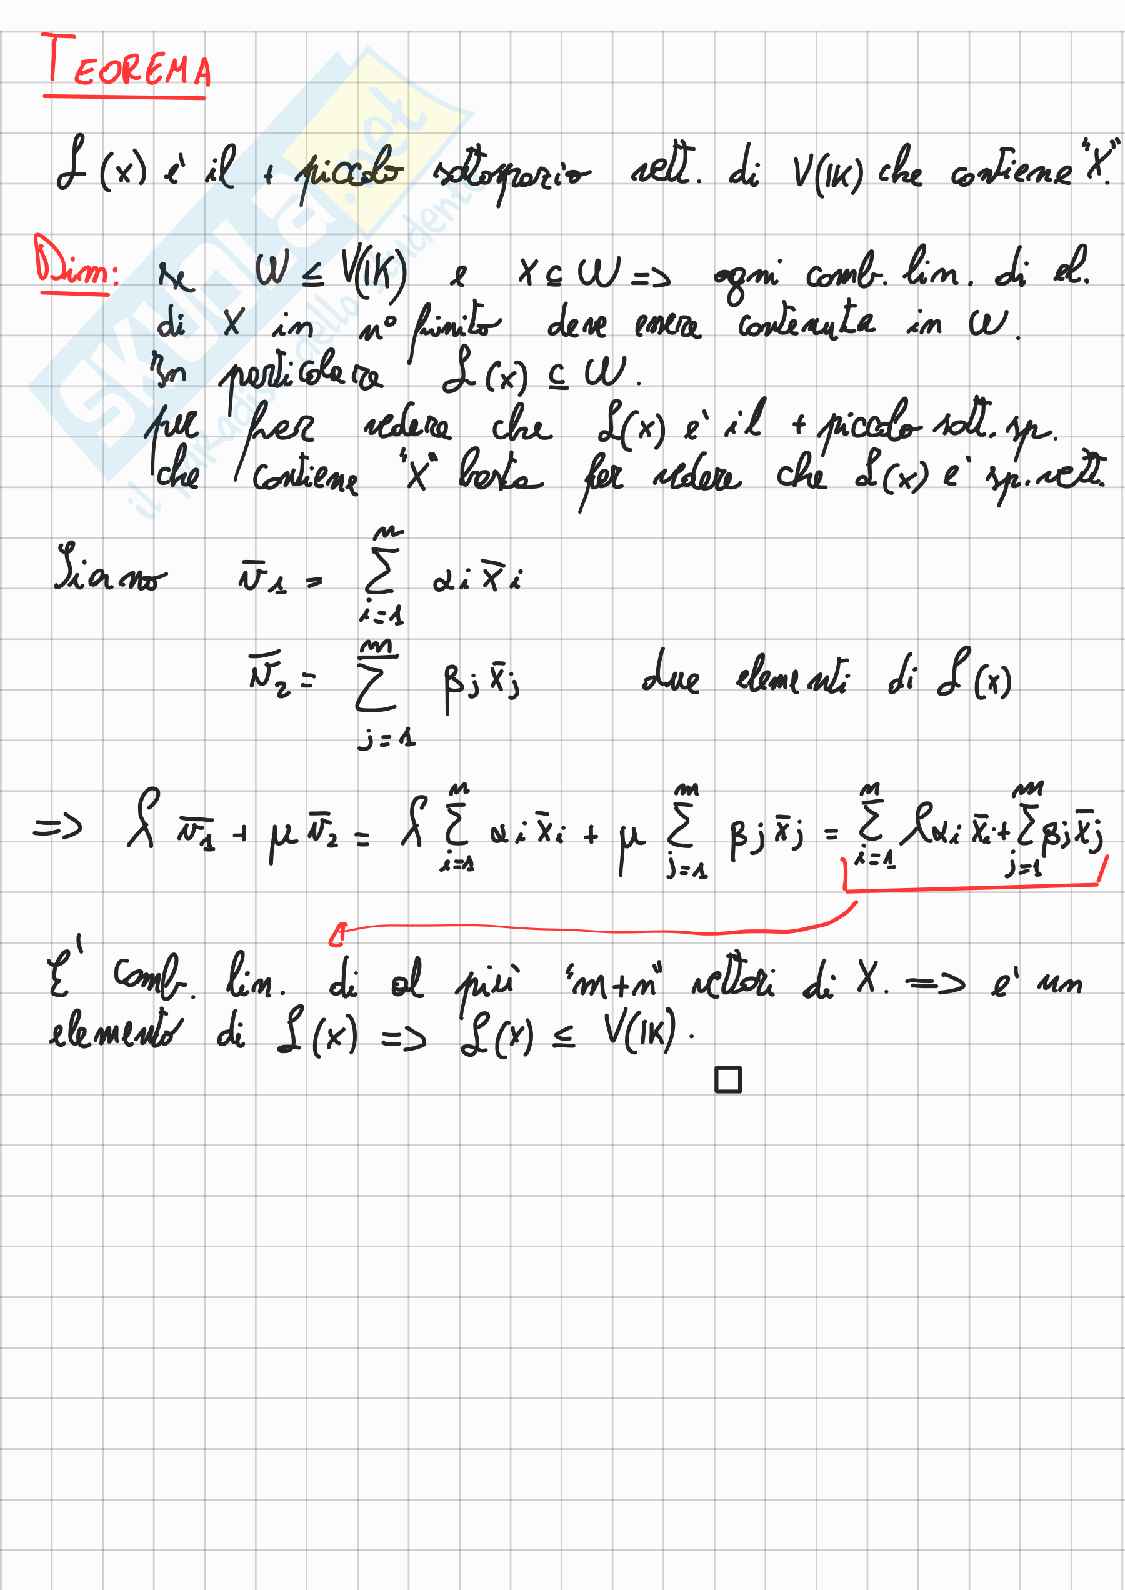 TEOREMA
ℒ(x) e' il + piccolo sottospazio vett. di V(𝕂) che contiene "X".
Dim: se W ≤ V(𝕂) e X ⊆ W => ogni comb. lin. di el.
di X in n° finito deve essere contenuta in W.
In particolare ℒ(x) ⊆ W.
per vedere che ℒ(x) e' il + piccolo sott. sp.
che contiene "X" basta per vedere che ℒ(x) e' sp. vett.
Siano v̅₁ = ∑ᵢ₌₁ⁿ αi x̅i
v̅₂ = ∑ⱼ₌₁ᵐ βj x̅j due elementi di ℒ(x)
=> λ v̅₁ + μ v̅₂ = λ ∑ᵢ₌₁ⁿ αi x̅i + μ ∑ⱼ₌₁ᵐ βj x̅j = ∑ᵢ₌₁ⁿ λαi x̅i + ∑ⱼ₌₁ᵐ βj x̅j
E' comb. lin. di al più "m+n" vettori di X. => e' un
elemento di ℒ(x) => ℒ(x) ≤ V(𝕂).
skuola.net